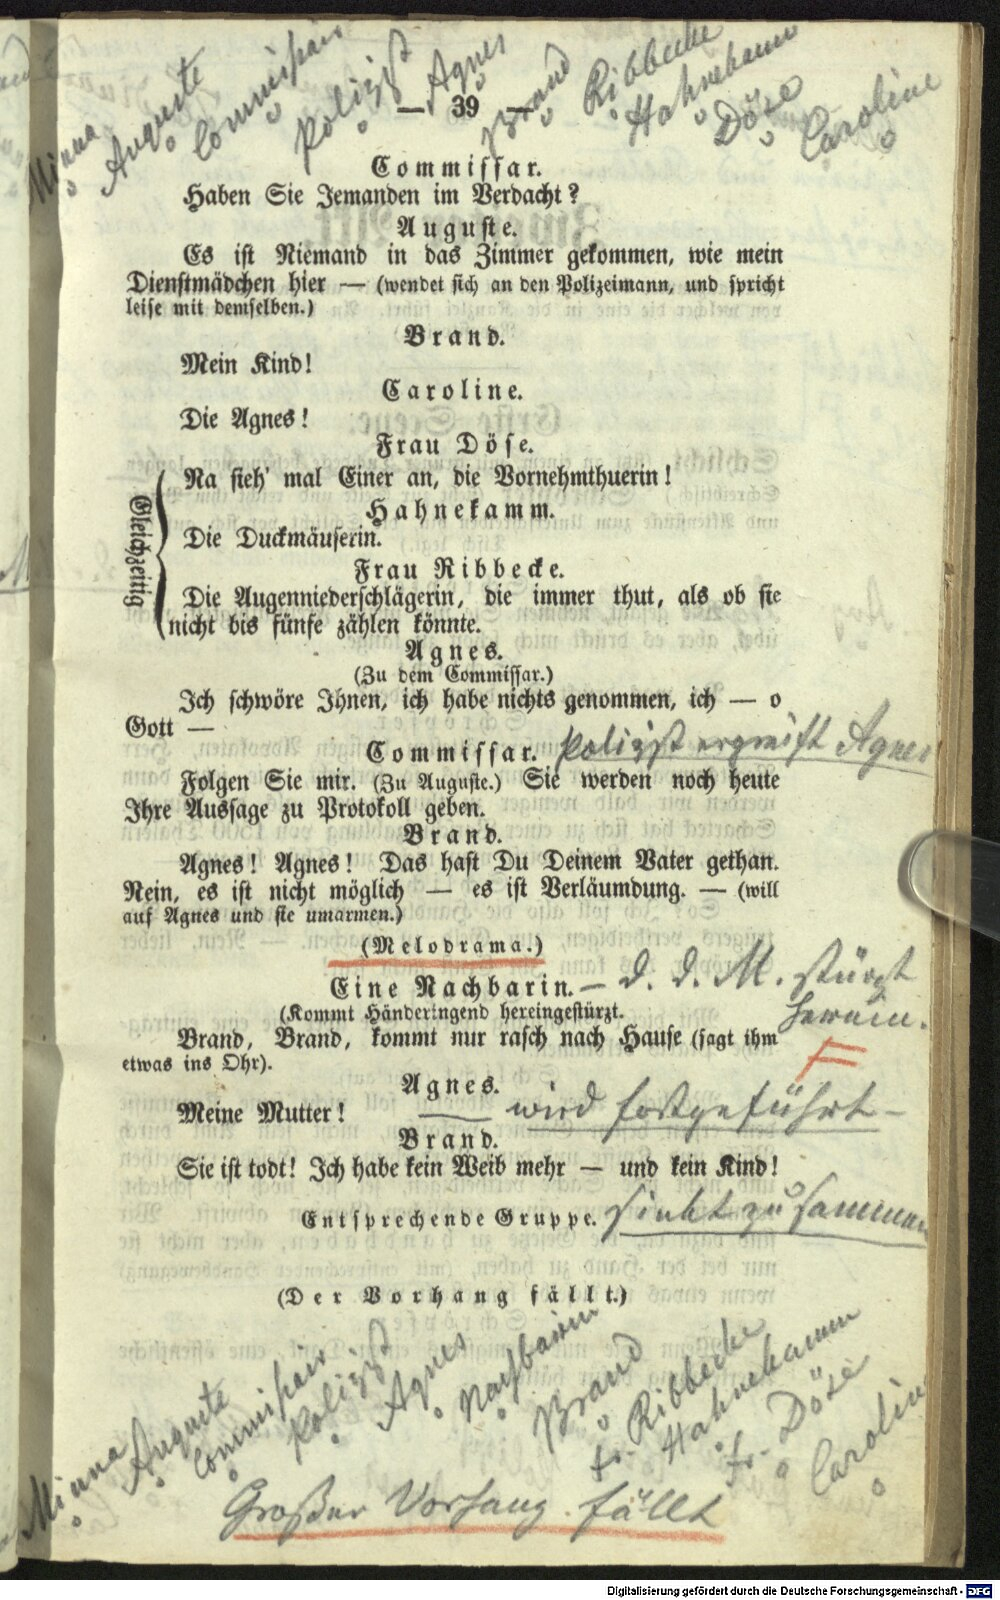 Minna Auguste Commissair Polizist Agnes Brand Ribbecke Hahnekamm Döse Caroline
— 39 —
Commissar.
Haben Sie Jemanden im Verdacht?
Auguste.
Es ist Niemand in das Zimmer gekommen, wie mein
Dienstmädchen hier — (wendet sich an den Polizeimann, und spricht
leise mit demselben.)
Brand.
Mein Kind!
Caroline.
Die Agnes!
Frau Döse.
Na sieh' mal Einer an, die Vornehmthuerin!
Hahnekamm.
Die Duckmäuserin.
Gleichzeitig
Frau Ribbecke.
Die Augenniederschlägerin, die immer thut, als ob sie
nicht bis fünfe zählen könnte.
Agnes.
(Zu dem Commissar.)
Ich schwöre Ihnen, ich habe nichts genommen, ich — o
Gott —
Commissar. Polizist ergreift Agnes
Folgen Sie mir. (Zu Auguste.) Sie werden noch heute
Ihre Aussage zu Protokoll geben.
Brand.
Agnes! Agnes! Das hast Du Deinem Vater gethan.
Nein, es ist nicht möglich — es ist Verläumdung. — (will
auf Agnes und sie umarmen.)
(Melodrama.)
Eine Nachbarin. — d. d. M. stürzt
herein.
(Kommt Händeringend hereingestürzt.
Brand, Brand, kommt nur rasch nach Hause (sagt ihm
etwas ins Ohr).
F
Agnes.
Meine Mutter! — wird fortgeführt —
Brand.
Sie ist todt! Ich habe kein Weib mehr — und kein Kind!
Entsprechende Gruppe. sinkt zusammen
(Der Vorhang fällt.)
Minna Auguste Commissair Polizist Agnes Nachbarin Brand Fr. Ribbecke Hahnekamm Fr. Döse Caroline
Großer Vorhang fällt
Digitalisierung gefördert durch die Deutsche Forschungsgemeinschaft - DFG